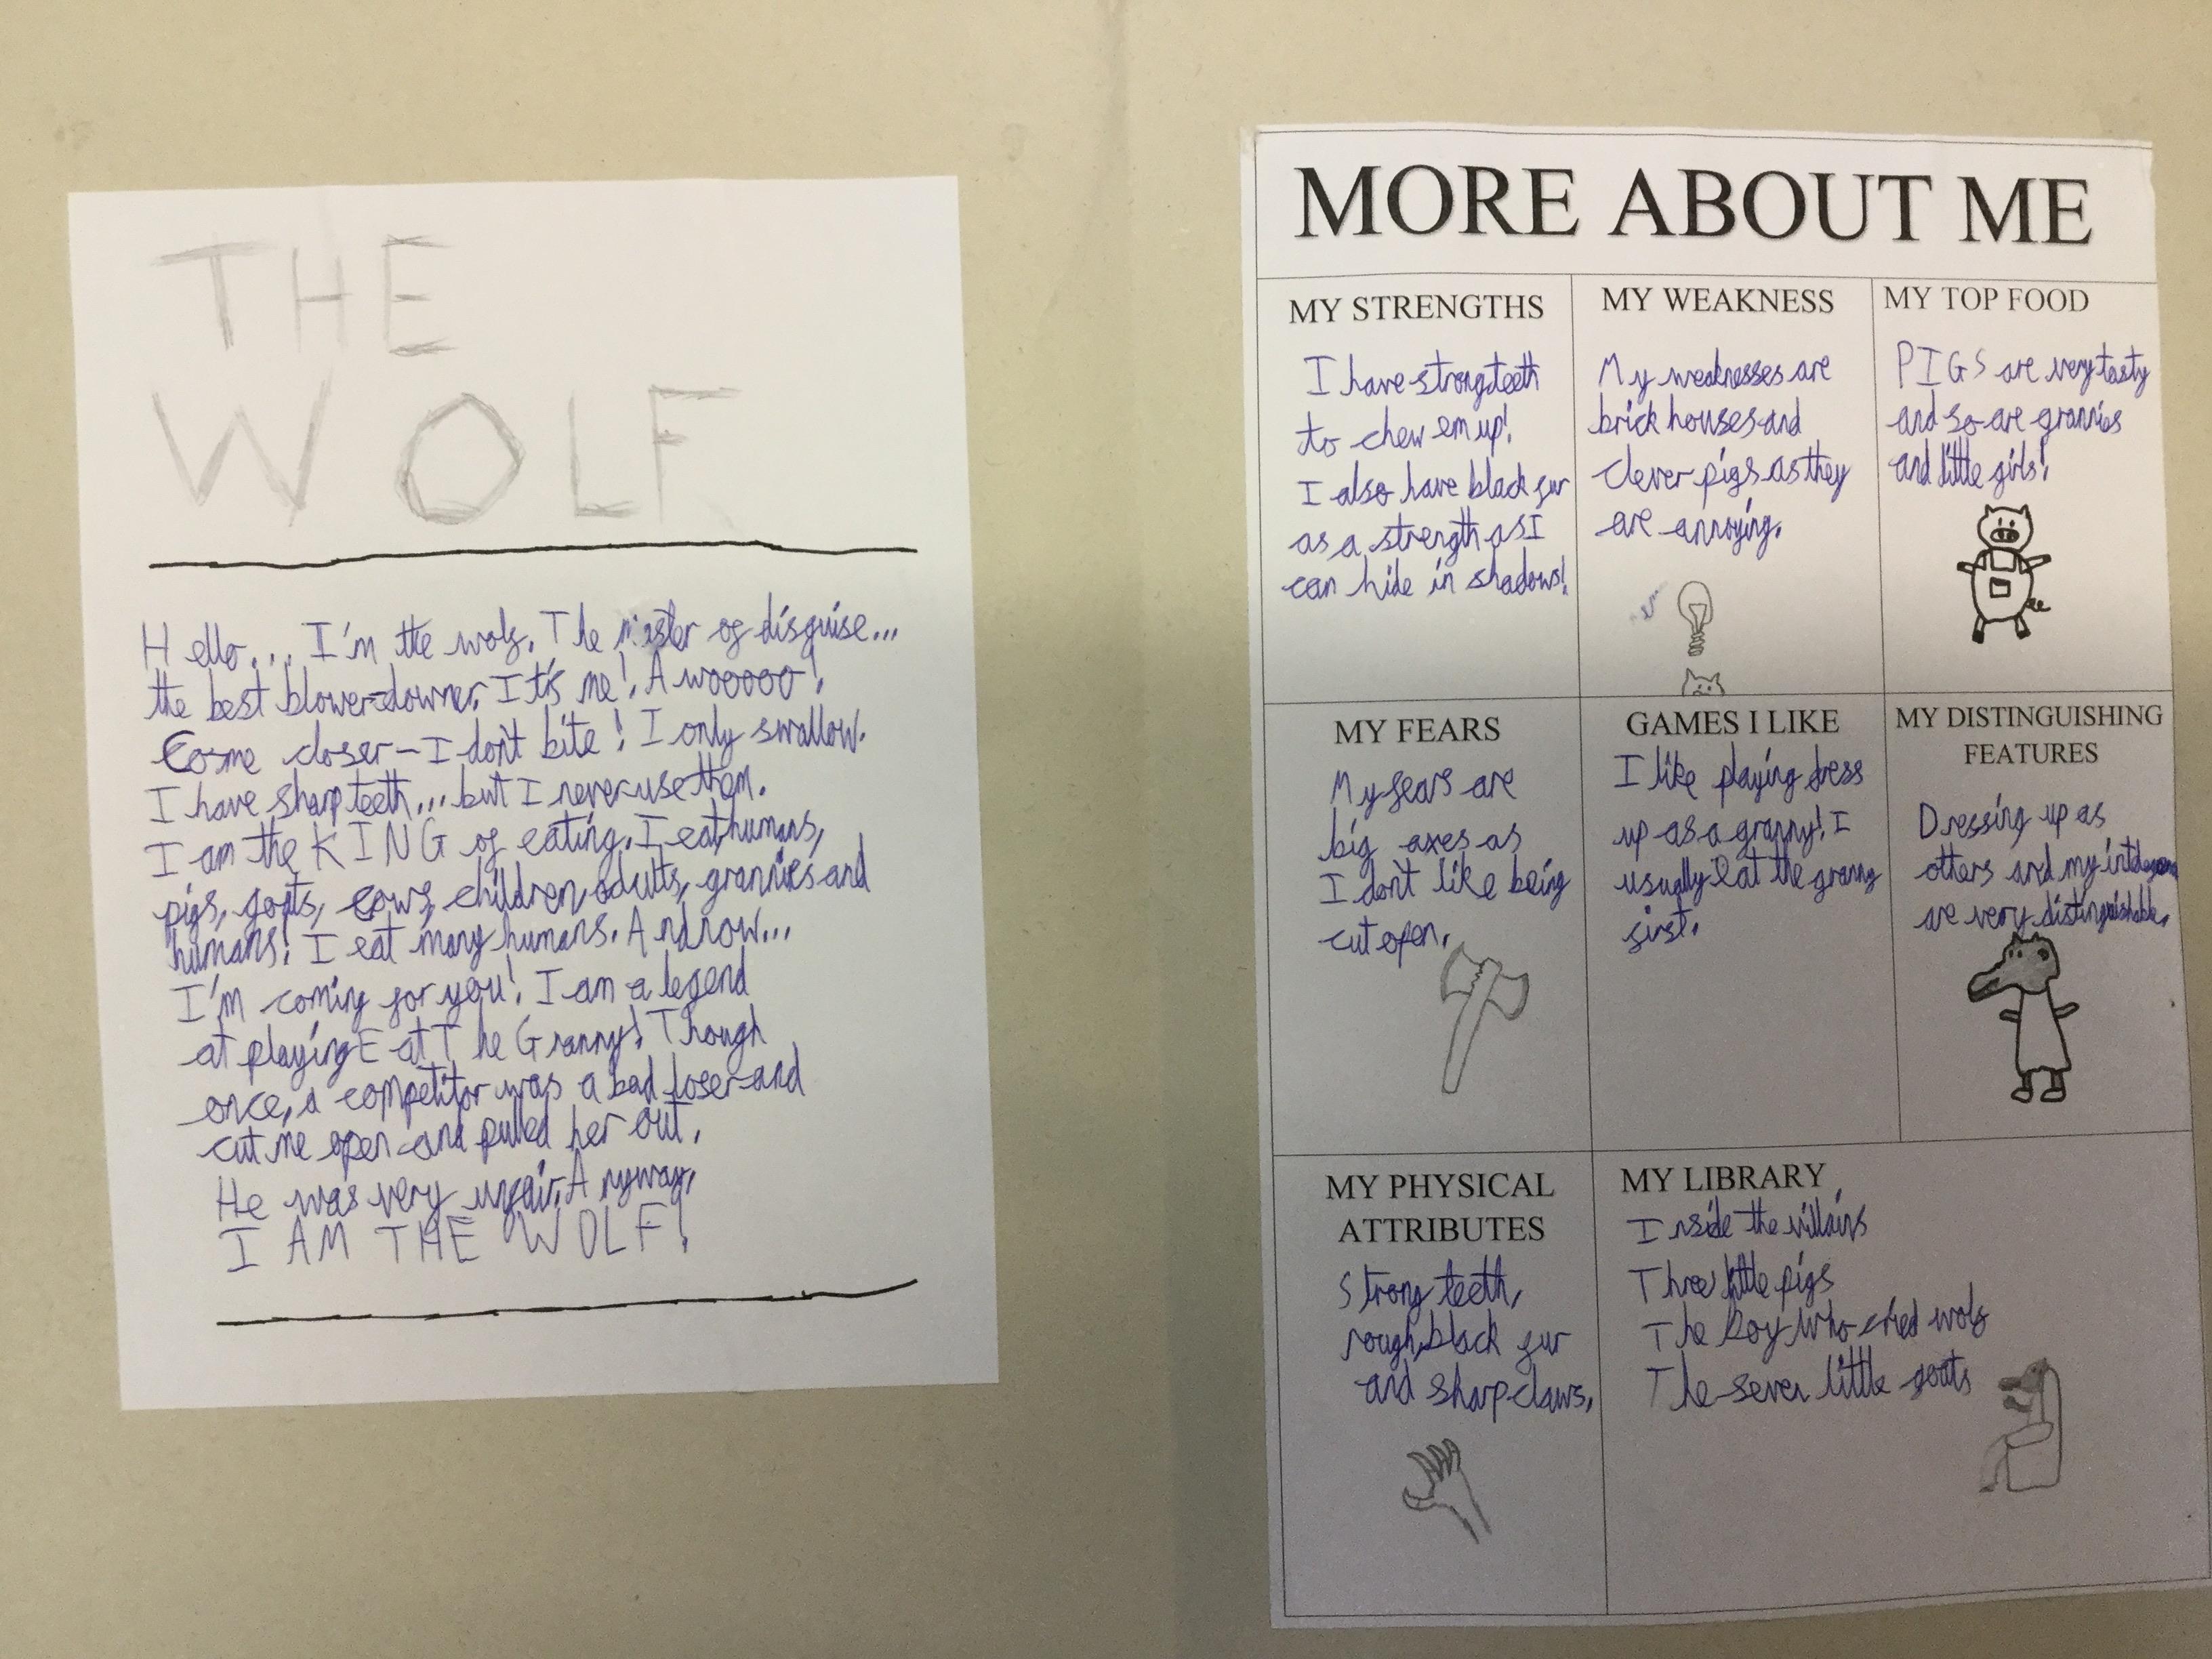 THE
WOLF
Hello... I'm the wolf. The master of disguise...
the best blower-downer. It's me! Awooooo!
Come closer - I don't bite! I only swallow.
I have sharp teeth... but I never use them.
I am the KING of eating. I eat humans,
pigs, goats, cows, children, adults, grannies and
humans! I eat many humans. And now...
I'm coming for you! I am a legend
at playing Eat The Granny! Though
once, a competitor was a bad loser and
cut me open and pulled her out.
He was very unfair. Anyway,
I AM THE WOLF!
MORE ABOUT ME
MY STRENGTHS
I have strong teeth
to chew em up!
I also have black fur
as a strength as I
can hide in shadows!
MY WEAKNESS
My weaknesses are
brick houses and
clever pigs as they
are annoying.
MY TOP FOOD
PIGS are very tasty
and so are grannies
and little girls!
MY FEARS
My fears are
big axes as
I don't like being
cut open.
GAMES I LIKE
I like playing dress
up as a granny! I
usually eat the granny
first.
MY DISTINGUISHING
FEATURES
Dressing up as
others and my
are very distinguishable.
MY PHYSICAL
ATTRIBUTES
Strong teeth,
rough, black fur
and sharp claws.
MY LIBRARY
Inside the villains
Three little pigs
The Boy Who cried wolf
The seven little goats